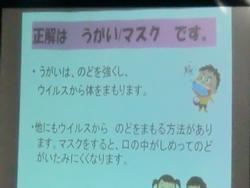 正解は　うがい/マスク　です。
・うがいは、のどを強くし、
ウイルスから体をまもります。
・他にもウイルスから のどをまもる方法があり
ます。マスクをすると、口の中がしめってのど
がいたみにくくなります。